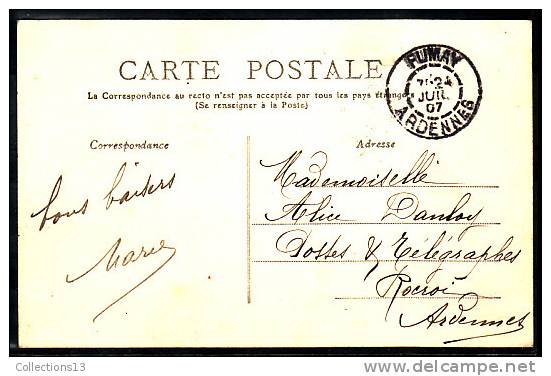 CARTE POSTALE
La Correspondance au recto n'est pas acceptée par tous les pays étrang
(Se renseigner à la Poste)
FUMAY
JUIL
07
ARDENNES
Correspondance
Adresse
bons baisers
Marie
Mademoiselle
Alice Danloy
Postes & Télégraphes
Rocroi
Ardennes
Collections13
delcampe.net